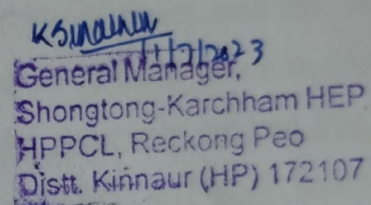 General Manager,
Shongtong-Karchham HEP
HPPCL, Reckong Peo
Distt. Kinnaur (HP) 172107